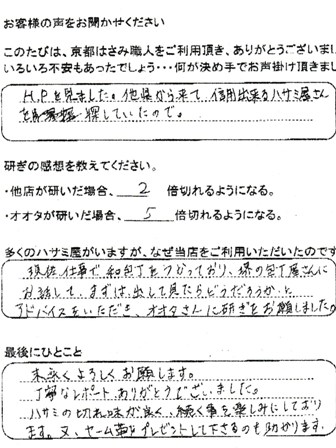 お客様の声をお聞かせください
このたびは、京都はさみ職人をご利用頂き、ありがとうございまし
いろいろ不安もあったでしょう･･･何が決め手でお声掛け頂きまし
H.Pを見ました。他県から来て 信用出来るハサミ屋さん
を 探していたので。
研ぎの感想を教えてください。
・他店が研いだ場合、 2 倍切れるようになる。
・オオタが研いだ場合、 5 倍切れるようになる。
多くのハサミ屋がいますが、なぜ当店をご利用いただいたのです
現在仕事で和包丁をつかっており、堺の包丁屋さんに
お話して、まずは、出して見たらどうだろうか、と
アドバイスをいただき、オオタさんに研ぎをお願いしましたの
最後にひとこと
末永くよろしくお願します。
丁寧なレポートありがとうございました。
ハサミの切れ味が良く、続く事を楽しみにしており
ます。又、セーム革をプレゼントして下さるのも助かります。